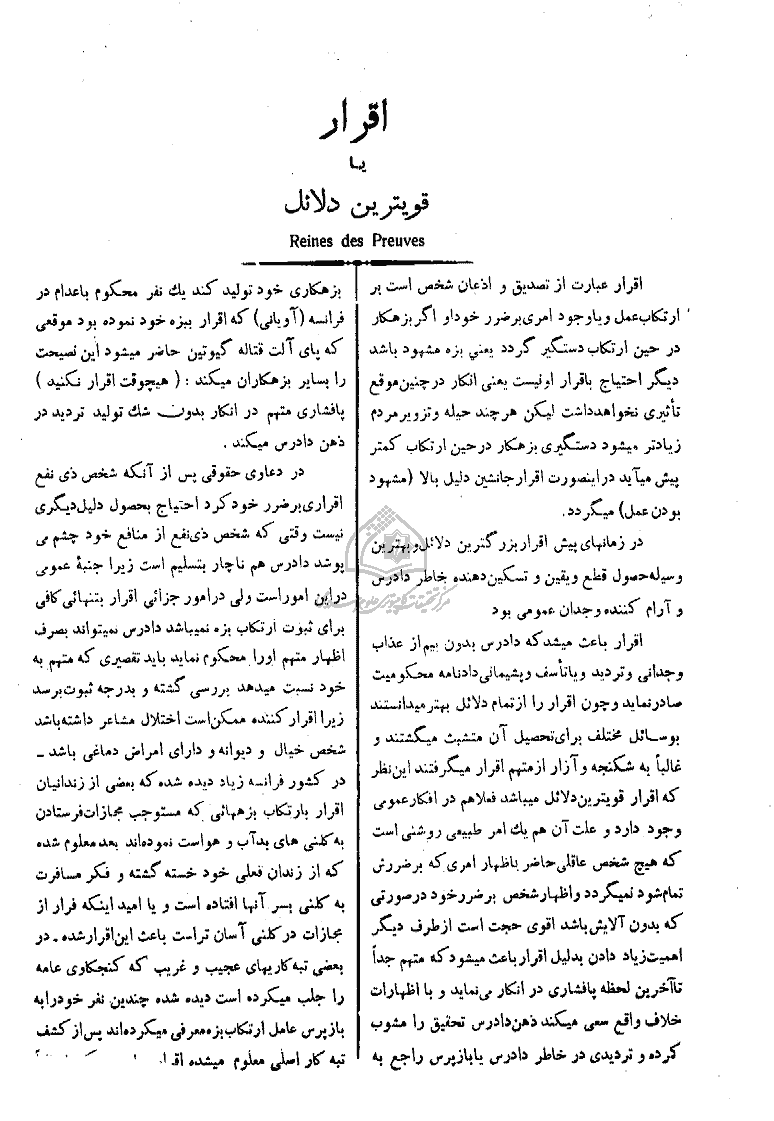 اقرار
یا
قویترین دلائل
Reines des Preuves
اقرار عبارت از تصدیق و اذعان شخص است بر
ارتکاب عمل ویاوجود امری برضرر خود او اگر بزهکار
در حین ارتکاب دستگیر گردد یعنی بزه مشهود باشد
دیگر احتیاج باقرار اونیست یعنی انکار درچنین موقع
تأثیری نخواهد داشت لیکن هرچند حیله وتزویر مردم
زیادتر میشود دستگیری بزهکار درحین ارتکاب کمتر
پیش میآید دراینصورت اقرار جانشین دلیل بالا (مشهود
بودن عمل) میگردد.
در زمانهای پیش اقرار بزرگترین دلائل و بهترین
وسیله حصول قطع ویقین و تسکین دهنده خاطر دادرس
و آرام کننده وجدان عمومی بود
اقرار باعث میشد که دادرس بدون بیم از عذاب
وجدانی وتردید ویاتأسف وپشیمانی دادنامه محکومیت
صادر نماید وچون اقرار را ازتمام دلائل بهتر میدانستند
بوسائل مختلف برای تحصیل آن متشبث میگشتند و
غالباً به شکنجه و آزار از متهم اقرار میگرفتند این نظر
که اقرار قویترین دلائل میباشد فعلاهم در افکار عمومی
وجود دارد و علت آن هم یك امر طبیعی روشنی است
که هیچ شخص عاقلی حاضر باظهار امری که برضررش
تمام شود نمیگردد واظهار شخص برضرر خود درصورتی
که بدون آلایش باشد اقوی حجت است ازطرف دیگر
اهمیت زیاد دادن بدلیل اقرار باعث میشود که متهم جداً
تاآخرین لحظه پافشاری در انکار می نماید و با اظهارات
خلاف واقع سعی میکند ذهن دادرس تحقیق را مشوب
کرده و تردیدی در خاطر دادرس یابازپرس راجع به
بزهکاری خود تولید کند یك نفر محکوم باعدام در
فرانسه (آویانی) که اقرار ببزه خود نموده بود موقعی
که پای آلت قتاله گیوتین حاضر میشود این نصیحت
را بسایر بزهکاران میکند : ( هیچوقت اقرار نکنید )
پافشاری متهم در انکار بدون شك تولید تردید در
ذهن دادرس میکند .
در دعاوی حقوقی پس از آنکه شخص ذی نفع
اقراری برضرر خود کرد احتیاج بحصول دلیل دیگری
نیست وقتی که شخص ذی نفع از منافع خود چشم می
پوشد دادرس هم ناچار بتسلیم است زیرا جنبهٔ عمومی
دراین اموراست ولی درامور جزائی اقرار بتنهائی کافی
برای ثبوت ارتکاب بزه نمیباشد دادرس نمیتواند بصرف
اظهار متهم اورا محکوم نماید باید تقصیری که متهم به
خود نسبت میدهد بررسی گشته و بدرجه ثبوت برسد
زیرا اقرار کننده ممکن است اختلال مشاعر داشته باشد
شخص خیال و دیوانه و دارای امراض دماغی باشد ـ
در کشور فرانسه زیاد دیده شده که بعضی از زندانیان
اقرار بارتکاب بزههائی که مستوجب مجازات فرستادن
به کلنی های بدآب و هواست نموده اند بعد معلوم شده
که از زندان فعلی خود خسته گشته و فکر مسافرت
به کلنی بسر آنها افتاده است و یا امید اینکه فرار از
مجازات در کلنی آسان تراست باعث این اقرار شده ـ در
بعضی تبه کاریهای عجیب و غریب که کنجکاوی عامه
را جلب میکرده است دیده شده چندین نفر خودرا به
بازپرس عامل ارتکاب بزه معرفی میکرده اند پس از کشف
تبه کار اصلی معلوم میشده